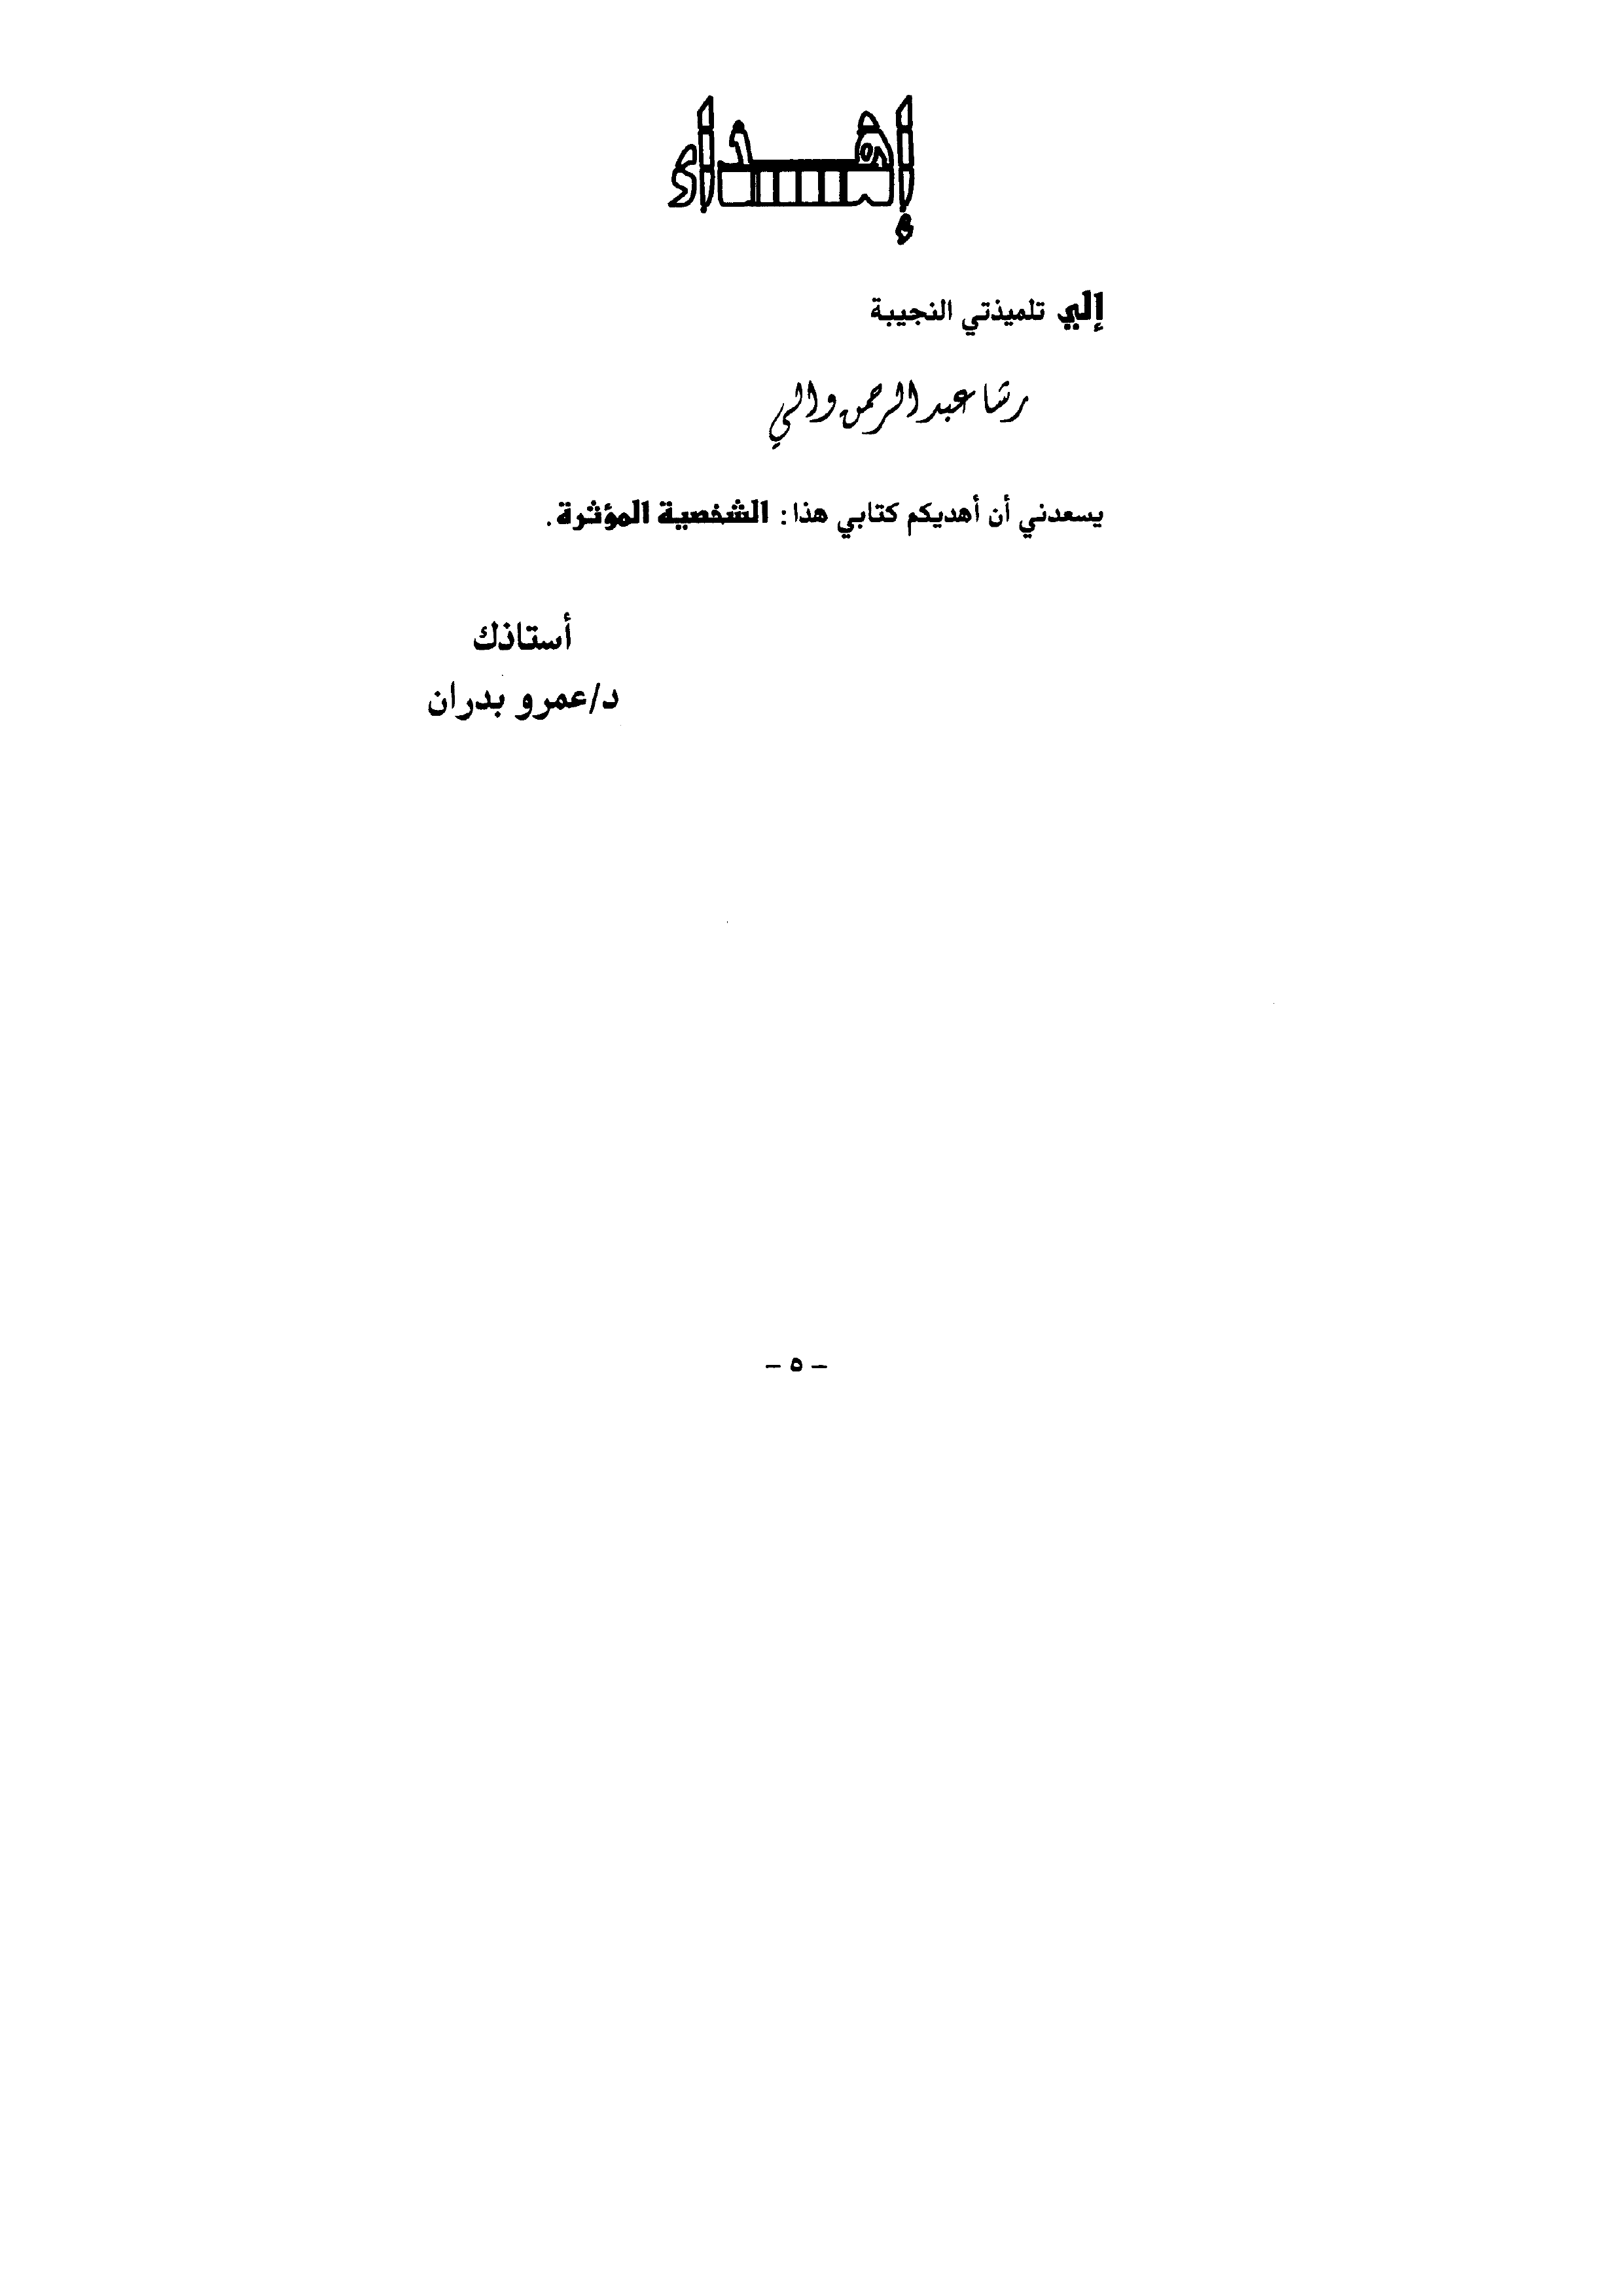 إهـــداء
إلي تلميذتي النجيبة
رشا عبد الرحمن والي
يسعدني أن أهديكم كتابي هذا : الشخصية المؤثرة.
أستاذك
د/عمرو بدران
– ٥ –